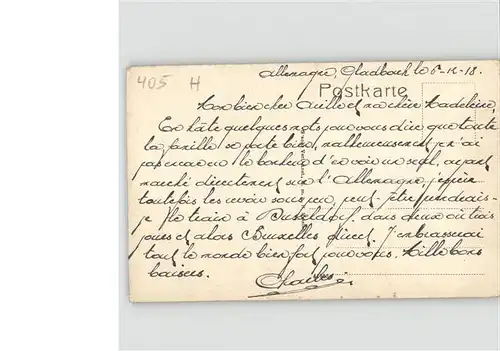 405 H
Allemagne, Gladbach le 6-12-18.
Postkarte
Mon bien cher et ma chère Madeleine,
En hâte quelques mots pour vous dire que toute
la famille se porte bien, malheureusement je n'ai
pas encore eu le bonheur d'en voir un seul, ayant
marché directement sur l'Allemagne, j'espère
toutefois les revoir sous peu, peut-être prendrais-
je le train à Dusseldorf, dans deux ou trois
jours et alors Bruxelles direct. J'embrasserai
tout le monde bien fort pour vous. Mille bons
baisers.
Charles